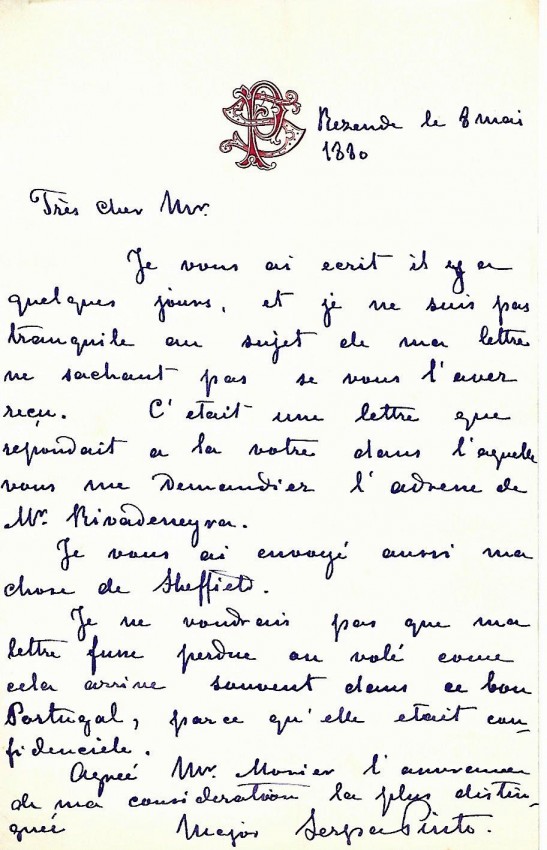 Rezende le 8 mai
1880
Très cher Mr.
Je vous ai ecrit il y a
quelques jours, et je ne suis pas
tranquile au sujet de ma lettre
ne sachant pas se vous l'aver
reçu. C'etait une lettre que
repondait a la votre dans l'aquelle
vous me Demandier l'adresse de
Mr. Rivadeneyra.
Je vous ai envoyé aussi ma
chose de Sheffield.
Je ne voudrais pas que ma
lettre fusse perdue ou volé come
cela arrive souvent dans ce bon
Portugal, parce qu'elle etait con-
fidenciele.
Agreé Mr. Monier l'
de ma consideration la plus distin-
guée Major Serpa Pinto.